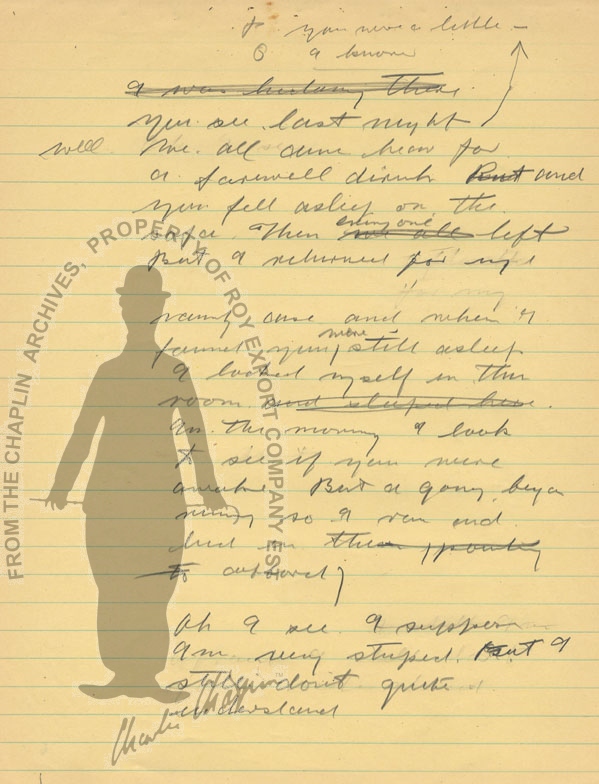 you were a little —
I know
I was hiding there
you see last night
well we all came hear for
a farewell drink But and
you fell asleep on the
sofa Then everyone we all left
But I returned for my
vanity case and when I
found you were still asleep
I locked myself in this
room and sleeped here.
In the morning I look
to see if you were
awake. But a gong began
ringing so I ran and
hid in the pantry
to cupboard
Oh I see. I suppose
I'm very stupid. But I
still dont quite
understand
FROM THE CHAPLIN ARCHIVES, PROPERTY OF ROY EXPORT COMPANY EST
Charlie Chaplin